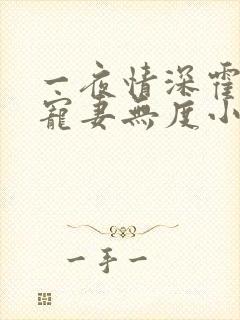 一夜情深霍
宠妻無度小
一手一